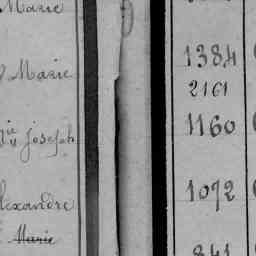 Marie
Marie 1384
2161
Joseph 1160
lexandre 1072
Marie
841